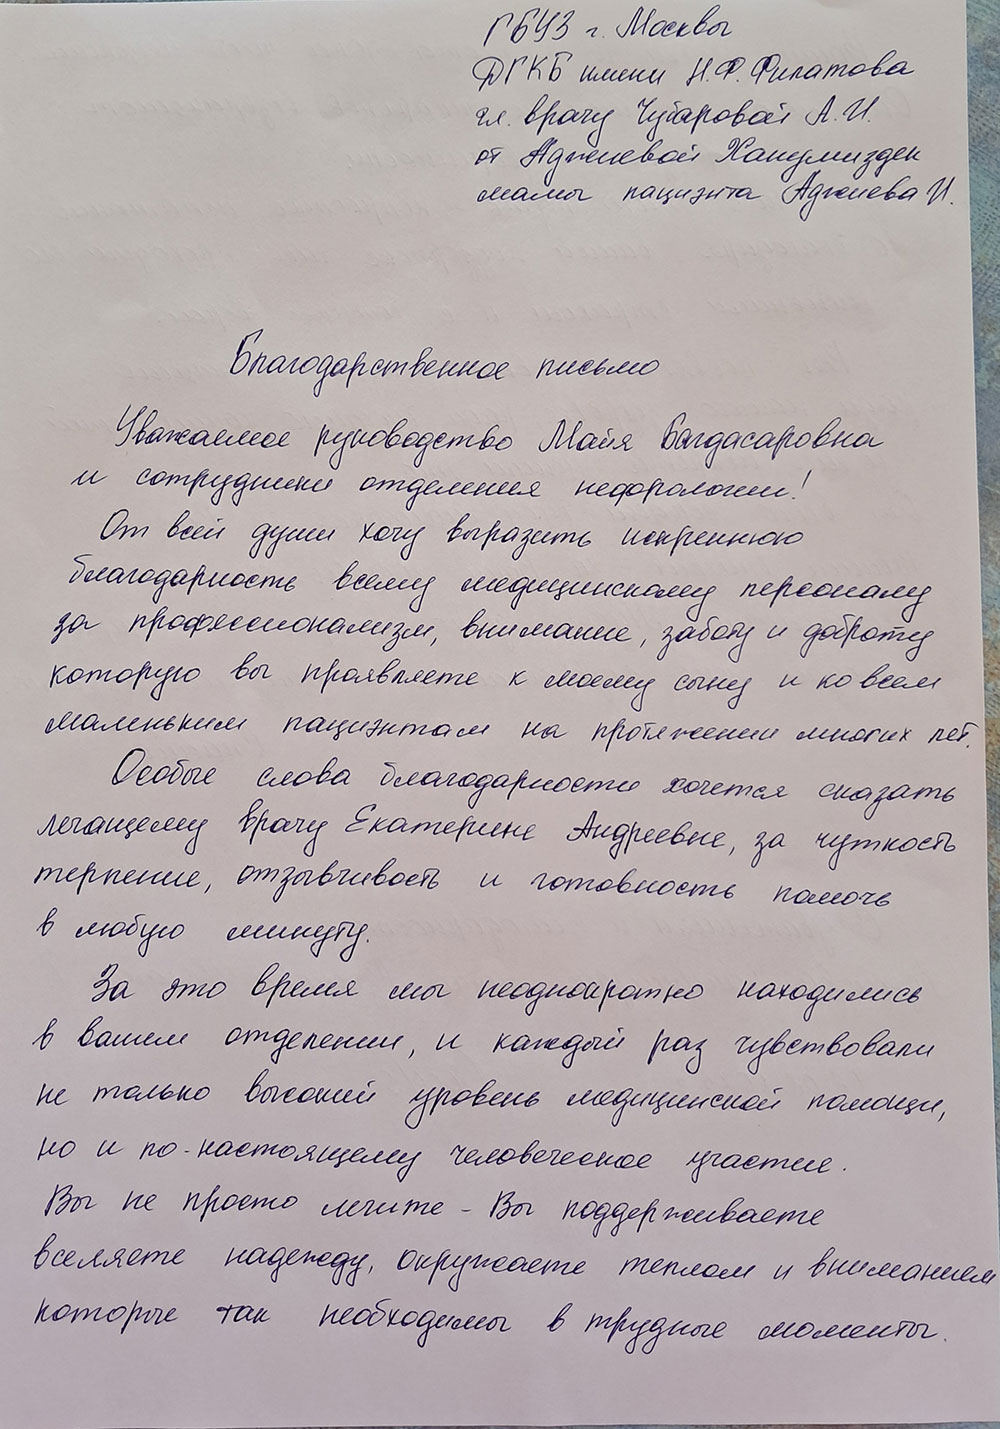 ГБУЗ г. Москвы
ДГКБ имени Н.Ф. Филатова
гл. врачу Чубаровой А.И.
от Аджиевой Ханумизден
мамы пациэнта Аджиева И.
Благодарственное письмо
Уважаемое руководство Майя Багдасаровна
и сотрудники отделения нефрологии!
От всей души хочу выразить искреннюю
благодарность всему медицинскому персоналу
за профессионализм, внимание, заботу и доброту
которую вы проявляете к моему сыну и ко всем
маленьким пациэнтам на протяжении многих лет.
Особые слова благодарности хочется сказать
лечащему врачу Екатерине Андреевне, за чуткость
терпение, отзывчивость и готовность помочь
в любую минуту.
За это время мы неоднократно находились
в вашем отделении, и каждый раз чувствовали
не только высокий уровень медицинской помощи,
но и по-настоящему человеческое участие.
Вы не просто лечите - Вы поддерживаете
вселяете надежду, окружаете теплом и вниманием
которые так необходимы в трудные моменты.